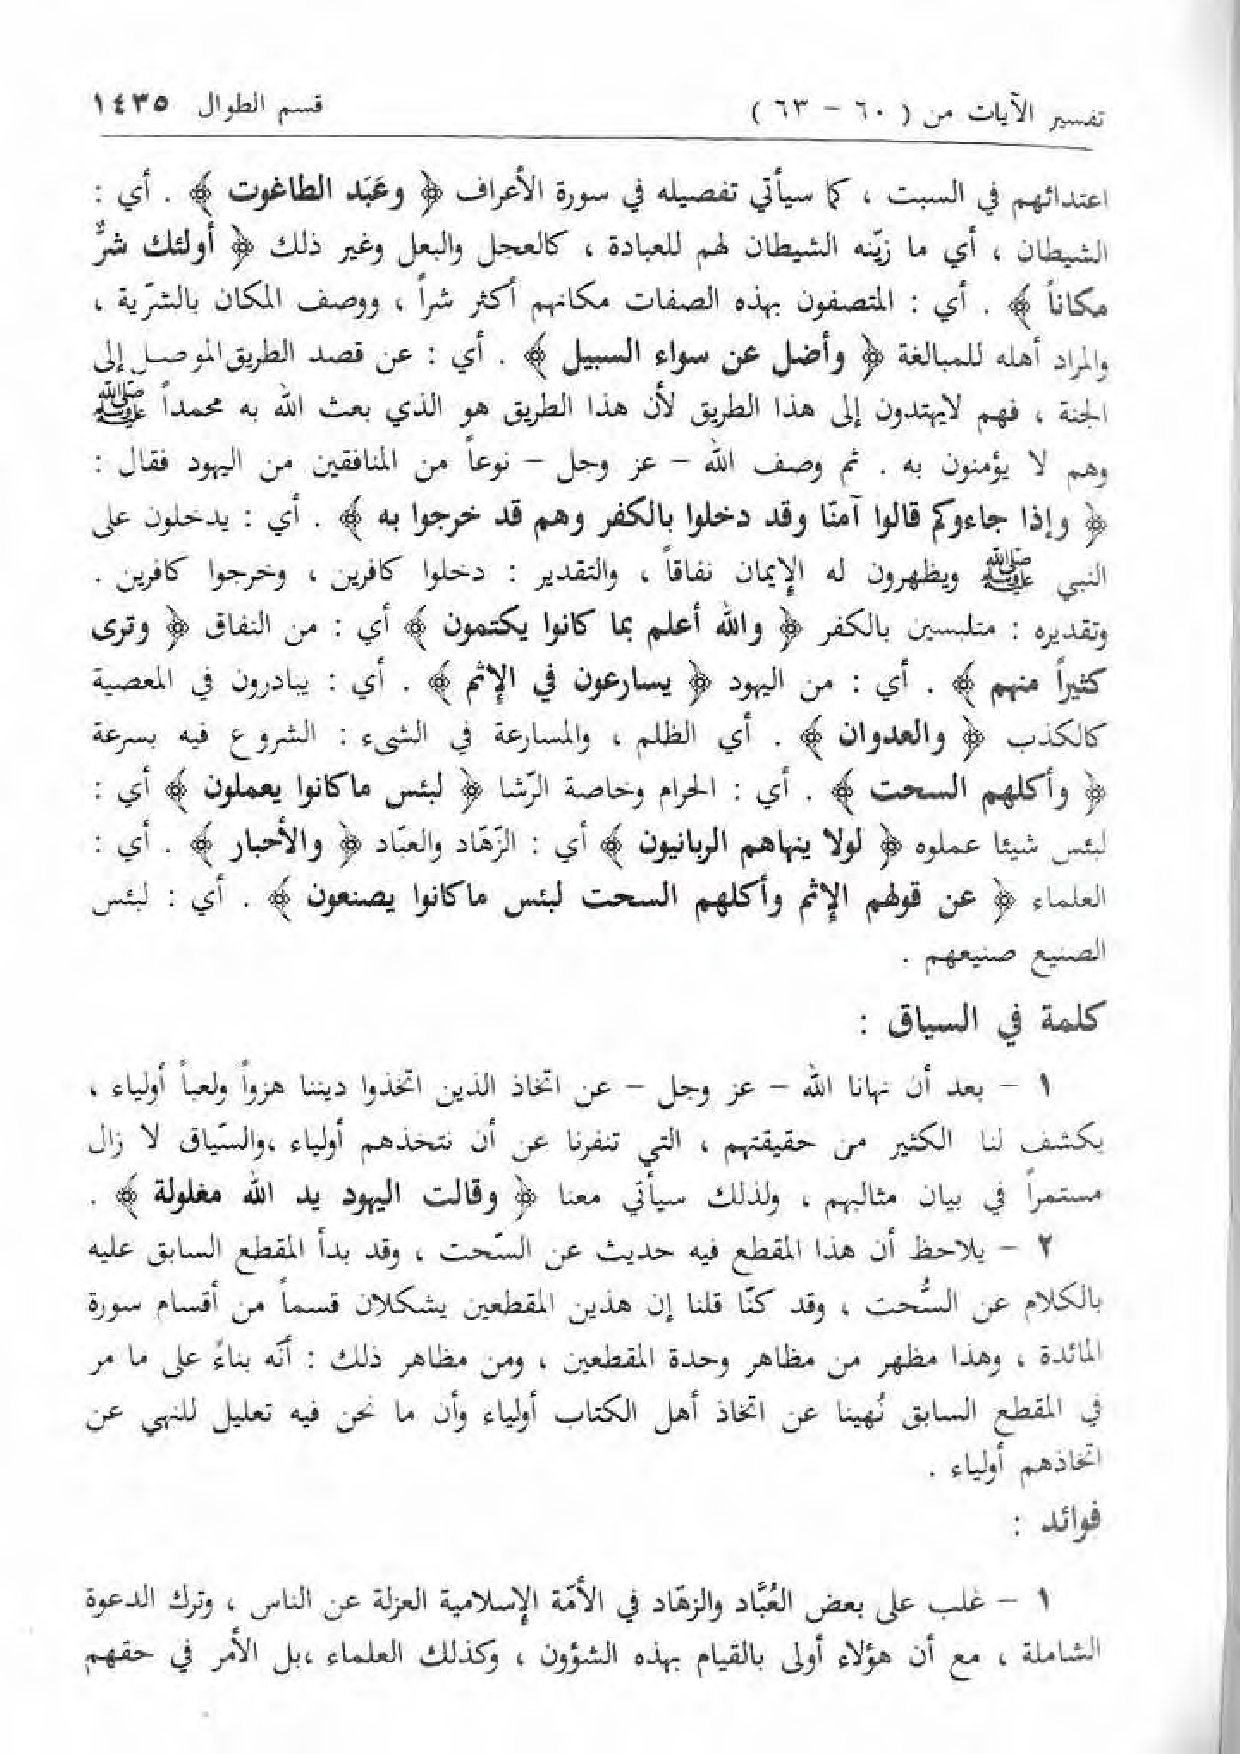 تفسير الآيات من ( ٦٠ – ٦٣ ) قسم الطوال ١٤٣٥
اعتدائهم في السبت ، كما سيأتي تفصيله في سورة الأعراف ﴿ وعَبَد الطاغوت ﴾ . أي :
الشيطان ، أي ما زيّنه الشيطان لهم للعبادة ، كالعجل والبعل وغير ذلك ﴿ أولئك شرٌّ
مكاناً ﴾ . أي : المتصفون بهذه الصفات مكانهم أكثر شراً ، ووصف المكان بالشرّية ،
والمراد أهله للمبالغة ﴿ وأضل عن سواء السبيل ﴾ . أي : عن قصد الطريق الموصل إلى
الجنة ، فهم لايهتدون إلى هذا الطريق لأن هذا الطريق هو الذي بعث الله به محمداً ﷺ
وهم لا يؤمنون به . ثم وصف الله – عز وجل – نوعاً من المنافقين من اليهود فقال :
﴿ وإذا جاءوكم قالوا آمنّا وقد دخلوا بالكفر وهم قد خرجوا به ﴾ . أي : يدخلون على
النبي ﷺ ويظهرون له الإيمان نفاقاً ، والتقدير : دخلوا كافرين ، وخرجوا كافرين .
وتقديره : متلبسين بالكفر ﴿ والله أعلم بما كانوا يكتمون ﴾ أي : من النفاق ﴿ وترى
كثيراً منهم ﴾ . أي : من اليهود ﴿ يسارعون في الإثم ﴾ . أي : يبادرون في المعصية
كالكذب ﴿ والعدوان ﴾ . أي الظلم ، والمسارعة في الشيء : الشروع فيه بسرعة
﴿ وأكلهم السحت ﴾ . أي : الحرام وخاصة الرّشا ﴿ لبئس ماكانوا يعملون ﴾ أي :
لبئس شيئا عملوه ﴿ لولا ينهاهم الربانيون ﴾ أي : الزّهّاد والعبّاد ﴿ والأحبار ﴾ . أي :
العلماء ﴿ عن قولهم الإثم وأكلهم السحت لبئس ماكانوا يصنعون ﴾ . أي : لبئس
الصنيع صنيعهم .
كلمة في السياق :
١ – بعد أن نهانا الله – عز وجل – عن اتخاذ الذين اتخذوا ديننا هزواً ولعباً أولياء ،
يكشف لنا الكثير من حقيقتهم ، التي تنفرنا عن أن نتخذهم أولياء ،والسّياق لا زال
مستمراً في بيان مثالبهم ، ولذلك سيأتي معنا ﴿ وقالت اليهود يد الله مغلولة ﴾ .
٢ – يلاحظ أن هذا المقطع فيه حديث عن السّحت ، وقد بدأ المقطع السابق عليه
بالكلام عن السُّحت ، وقد كنّا قلنا إن هذين المقطعين يشكلان قسماً من أقسام سورة
المائدة ، وهذا مظهر من مظاهر وحدة المقطعين ، ومن مظاهر ذلك : أنّه بناءً على ما مر
في المقطع السابق نُهينا عن اتخاذ أهل الكتاب أولياء وأن ما نحن فيه تعليل للنهي عن
اتخاذهم أولياء .
فوائد :
١ – غلب على بعض العُبَّاد والزهّاد في الأمّة الإسلامية العزلة عن الناس ، وترك الدعوة
الشاملة ، مع أن هؤلاء أولى بالقيام بهذه الشؤون ، وكذلك العلماء ،بل الأمر في حقهم